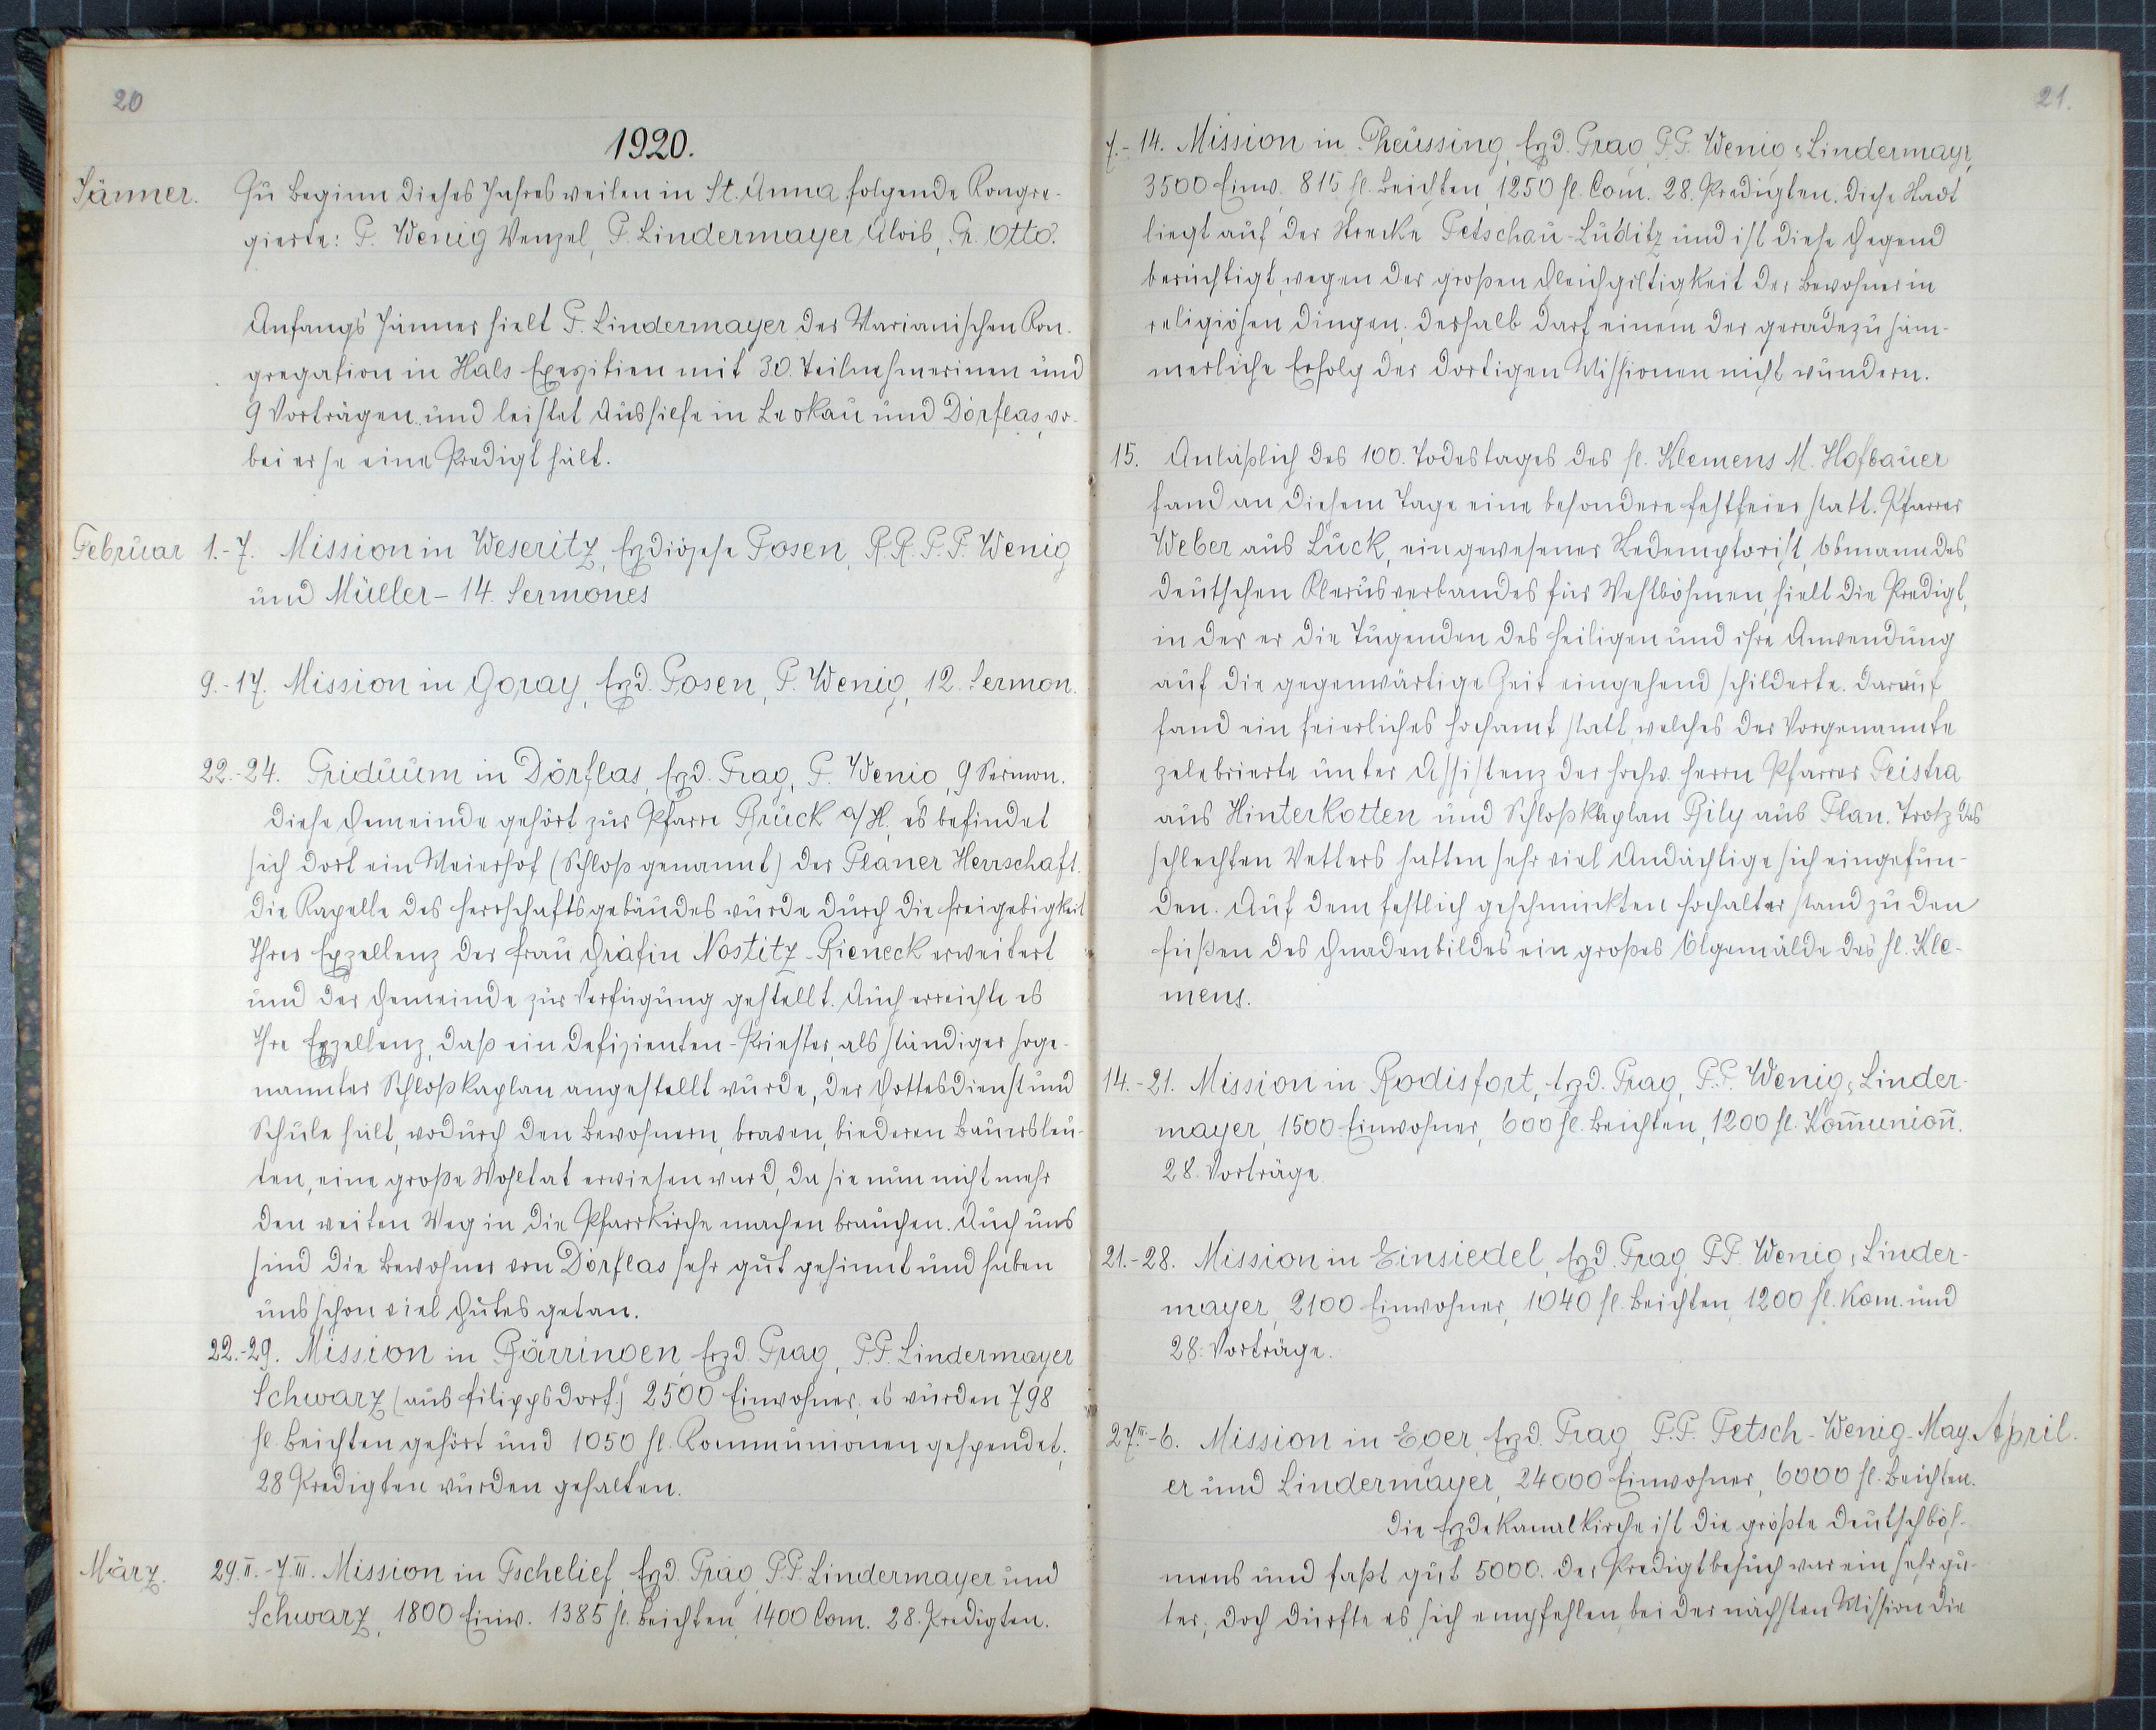 20
1920.
Jänner. Zu Beginn dieses Jahres weilen in St. Anna folgende Kongre-
gierte: P. Wenig Wenzel, P. Lindermayer Alois, Fr. Otto.
Anfangs Jänner hielt P. Lindermayer der Marianischen Kon-
gregation in Hals Exerzitien mit 30. Teilnehmerinen und
9 Vorträgen und leistet Aushilfe in Leskau und Dörflas, wo-
bei er je eine Predigt hält.
Februar 1.-7. Mission in Weseritz, Erzdiözese Posen, R.R. P.P. Wenig
und Müller - 14. Sermones
9.-17. Mission in Goray, Erzd. Posen, P. Wenig, 12. Sermon.
22.-24. Triduum in Dörflas, Erzd. Prag, P. Wenig, 9 Sermon.
Diese Gemeinde gehört zur Pfarre Bruck a/H. es befindet
sich dort ein Meierhof (Schloß genannt) der Planer Herrschaft.
Die Kapelle des Herrschaftsgebäudes wurde durch die Freigebigkeit
Ihrer Exzellenz der Frau Gräfin Nostitz-Rieneck erweitert
und der Gemeinde zur Verfügung gestellt. Auch erreichte es
Ihre Exzellenz, daß ein Defizienten-Priester, als ständiger soge-
nannter Schloßkaplan angestellt wurde, der Gottesdienst und
Schule hält, wodurch den Bewohnern, braven, biederen Bauersleu-
ten, eine große Wohltat erwiesen ward, da sie nun nicht mehr
den weiten Weg in die Pfarrkirche machen brauchen. Auch uns
sind die Bewohner von Dörflas sehr gut gesinnt und haben
uns schon viel Gutes getan.
22.-29. Mission in Bärringen, Erzd. Prag, P.P. Lindermayer
Schwarz (aus Filippsdorf.) 2500 Einwohner, es wurden 798
hl. Beichten gehört und 1050 hl. Kommunionen gespendet;
28 Predigten wurden gehalten.
März. 29.II.-7.III. Mission in Tschelief, Erzd. Prag, P.P. Lindermayer und
Schwarz, 1800 Einw. 1385 hl. Beichten, 1400 Com. 28. Predigten.
21.
7.-14. Mission in Theussing, Erzd. Prag, P.P. Wenig, Lindermayr,
3500 Einw. 815 hl. Beichten, 1250 hl. Com. 28. Predigten. Diese Stadt
liegt auf der Strecke Petschau-Luditz und ist diese Gegend
berüchtigt, wegen der großen Gleichgiltigkeit der Bewohner in
religiösen Dingen; deshalb darf einem der geradezu jäm-
merliche Erfolg der dortigen Missionen nicht wundern.
15. Anläßlich des 100. Todestages des hl. Klemens M. Hofbauer
fand an diesem Tage eine besondere Festfeier statt. Pfarrer
Weber aus Luck, ein gewesener Redemptorist, Obmann des
deutschen Klerusverbandes für Westböhmen, hielt die Predigt,
in der er die Tugenden des Heiligen und ihre Anwendung
auf die gegenwärtige Zeit eingehend schilderte. Darauf
fand ein feierliches Hochamt statt, welches der Vorgenannte
zelebrierte unter Assistenz der hochw. Herrn Pfarrer Peistra
aus Hinterkotten und Schloßkaplan Bily aus Plan. Trotz des
schlechten Wetters hatten sehr viel Andächtige sich eingefun-
den. Auf dem festlich geschmückten Hochaltar stand zu den
Füßen des Gnadenbildes ein großes Ölgemälde des hl. Kle-
mens.
14.-21. Mission in Rodisfort, Erzd. Prag, P.P. Wenig, Linder-
mayer, 1500 Einwohner, 600 hl. Beichten, 1200 hl. Kom̄union̄.
28. Vorträge.
21.-28. Mission in Einsiedel, Erzd. Prag, P.P. Wenig, Linder-
mayer, 2100 Einwohner, 1040 hl. Beichten, 1200 hl. Kom. und
28. Vorträge.
27.III.-6. Mission in Eger, Erzd. Prag, P.P. Petsch-Wenig-May- April.
er und Lindermayer, 24000 Einwohner, 6000 hl. Beichten.
Die Erzdekanalkirche ist die größte Deutschböh-
mens und faßt gut 5000. Der Predigtbesuch war ein sehr gu-
ter; doch dürfte es sich empfehlen, bei der nächsten Mission die